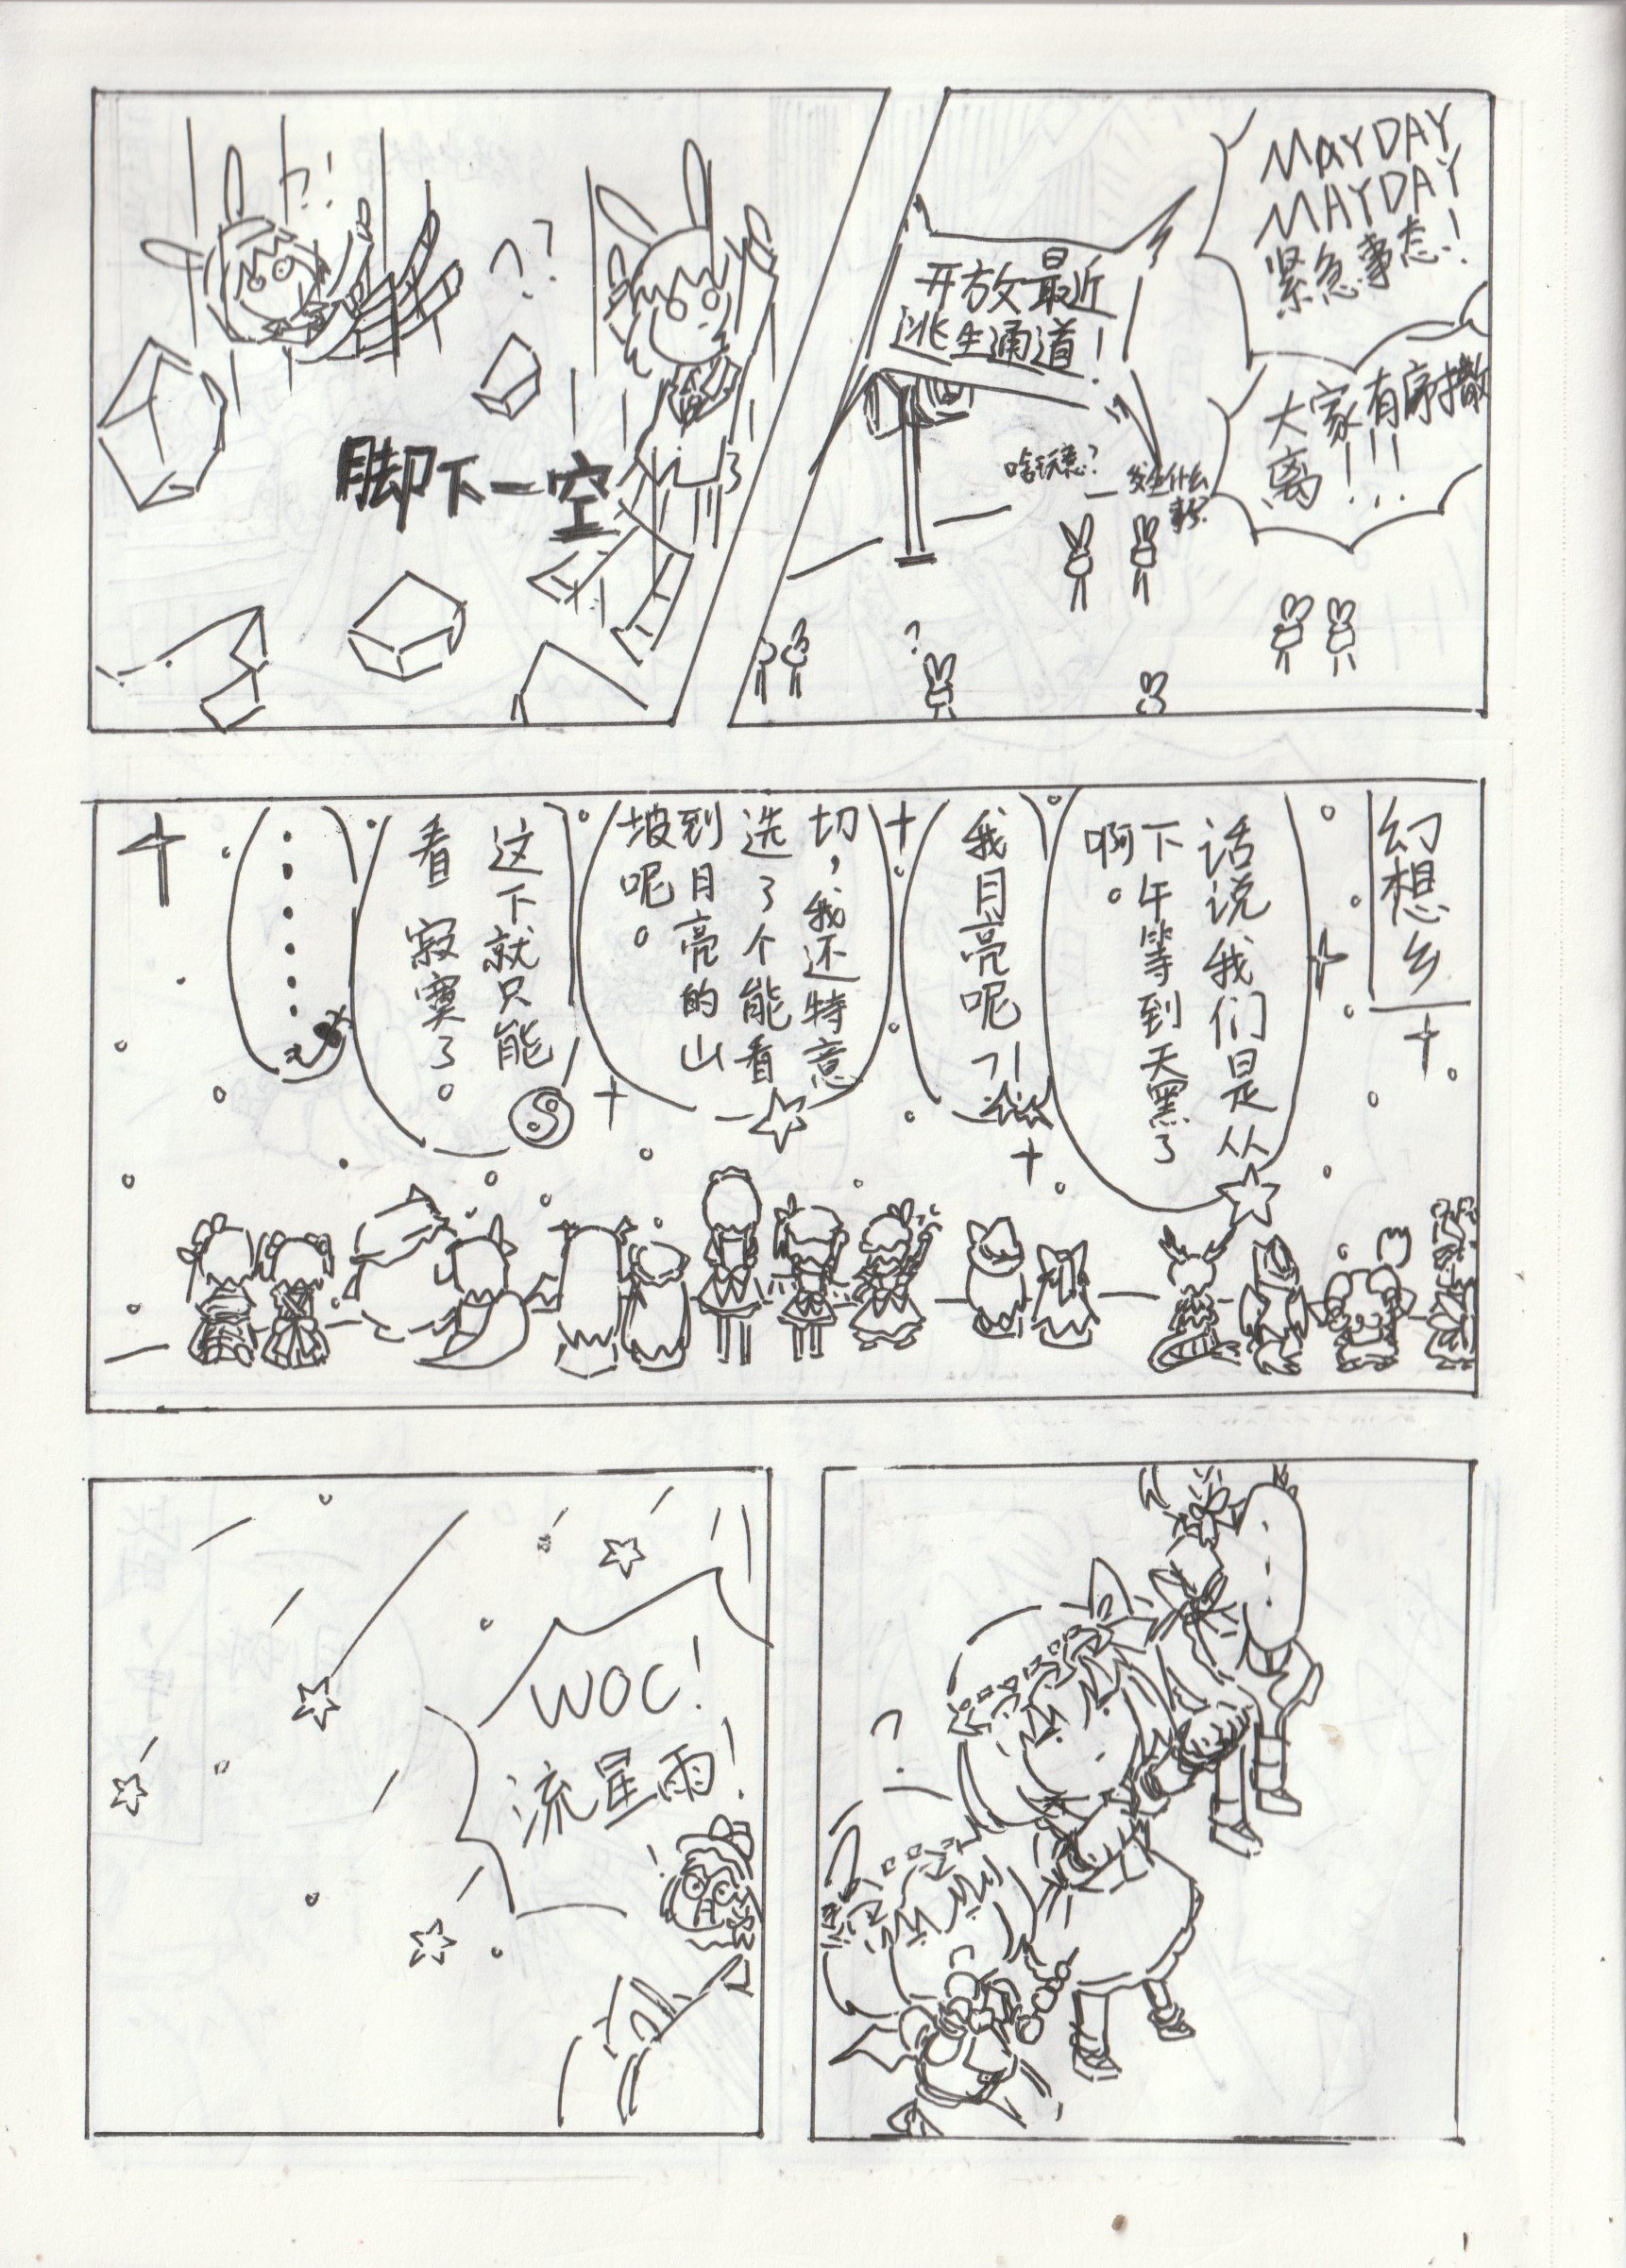 MAYDAY
MAYDAY
紧急事态!
大家有序撤
离!!!
开放最近
逃生通道!
啥玩意?
发生什么
事?
?
??
?!
脚下一空
幻想乡
话说我们是从
下午等到天黑了
啊。
我月亮呢?!
切,我还特意
选了个能看
到月亮的山
坡呢。
这下就只能
看寂寞了。
......
?
WOC!
流星雨!
!